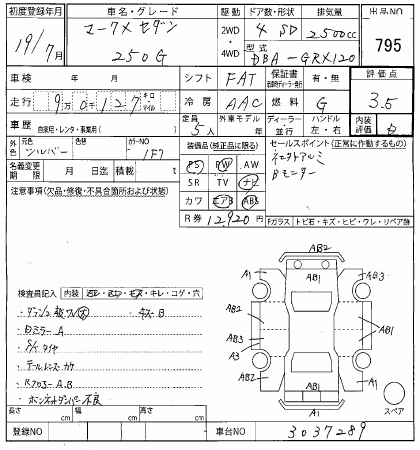 初度登録年月 車名・グレード 駆動 ドア数・形状 排気量 出品NO
19/7月 マークXセダン 2WD・4WD 4 SD 2500cc 795
250G 型式 DBA-GRX120
車検 年 月 シフト FAT 保証書 有・無 評価点
走行 9万0千127 キロ・マイル 冷房 AAC 燃料 G 3.5
車歴 自家用・レンタ・事業用( ) 定員 5人 外車モデル年 ディーラー・並行 ハンドル 左・右 内装評価
外色 元色 シルバー 色替 カラーNO 1F7 装備品(純正品に限る) セールスポイント(正常に作動するもの)
PS PW AW
名義変更期限 月 日迄 積載 t SR TV ナビ Bモニター
注意事項(欠品・修復・不具合箇所および状態) カワ エアB ABS
R券 12,920円 Fガラス トビ石・キズ・ヒビ・ワレ・リペア跡
検査員記入 内装 キレ・コゲ・穴
キズB
Dミラー A
S/イ タイヤ
テールレンズ カケ
Rアロミ A.B
ボンネットダンパー不良
AB2
A1 AB1 AB3
AB2 AB1
AB3 AB1
A3
AB2 AB1 A1
A1
スペア
長さ cm 幅 cm 高さ cm
登録NO 車台NO 3037289